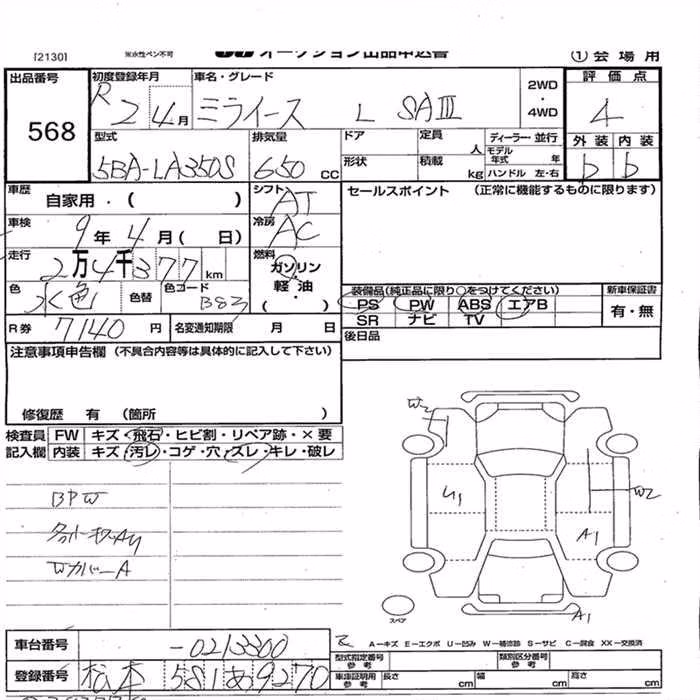 [2130] ※永性ペン不可 オークション出品申込書 ①会場用
出品番号 初度登録年月 車名・グレード 2WD・4WD 評価点
568 R 2 4月 ミライース L SAⅢ 4
型式 排気量 ドア 定員 人 ディーラー 並行 外装 内装
5BA-LA350S 650 CC 形状 積載 kg モデル年式 年 ハンドル 左・右 b b
車歴 自家用・( ) シフト AT セールスポイント (正常に機能するものに限ります)
車検 9年 4月( 日) 冷房 AC
走行 2万4千377km 燃料 ガソリン・軽油・( )
色 水色 色替 色コード B83
装備品(純正品に限り○をつけてください) 新車保証書
PS PW ABS エアB 有・無
SR ナビ TV
R券 7140円 名変通知期限 月 日 後日品
注意事項申告欄 (不具合内容等は具体的に記入して下さい)
修復歴 有 (箇所 )
検査員 FW キズ・飛石・ヒビ割・リペア跡・×要
記入欄 内装 キズ・汚レ・コゲ・穴・ズレ・キレ・破レ
W2
U1 W2
A1
BPW
WカバーA
スペア
A1
A-キズ E-エクボ U-凹み W-補修跡 S-サビ C-腐食 XX-交換済
車台番号 -0213300
型式指定番号参考 類別区分番号参考
登録番号 松本 581 あ 9270
車庫証明用参考 長さ cm 幅 cm 高さ cm